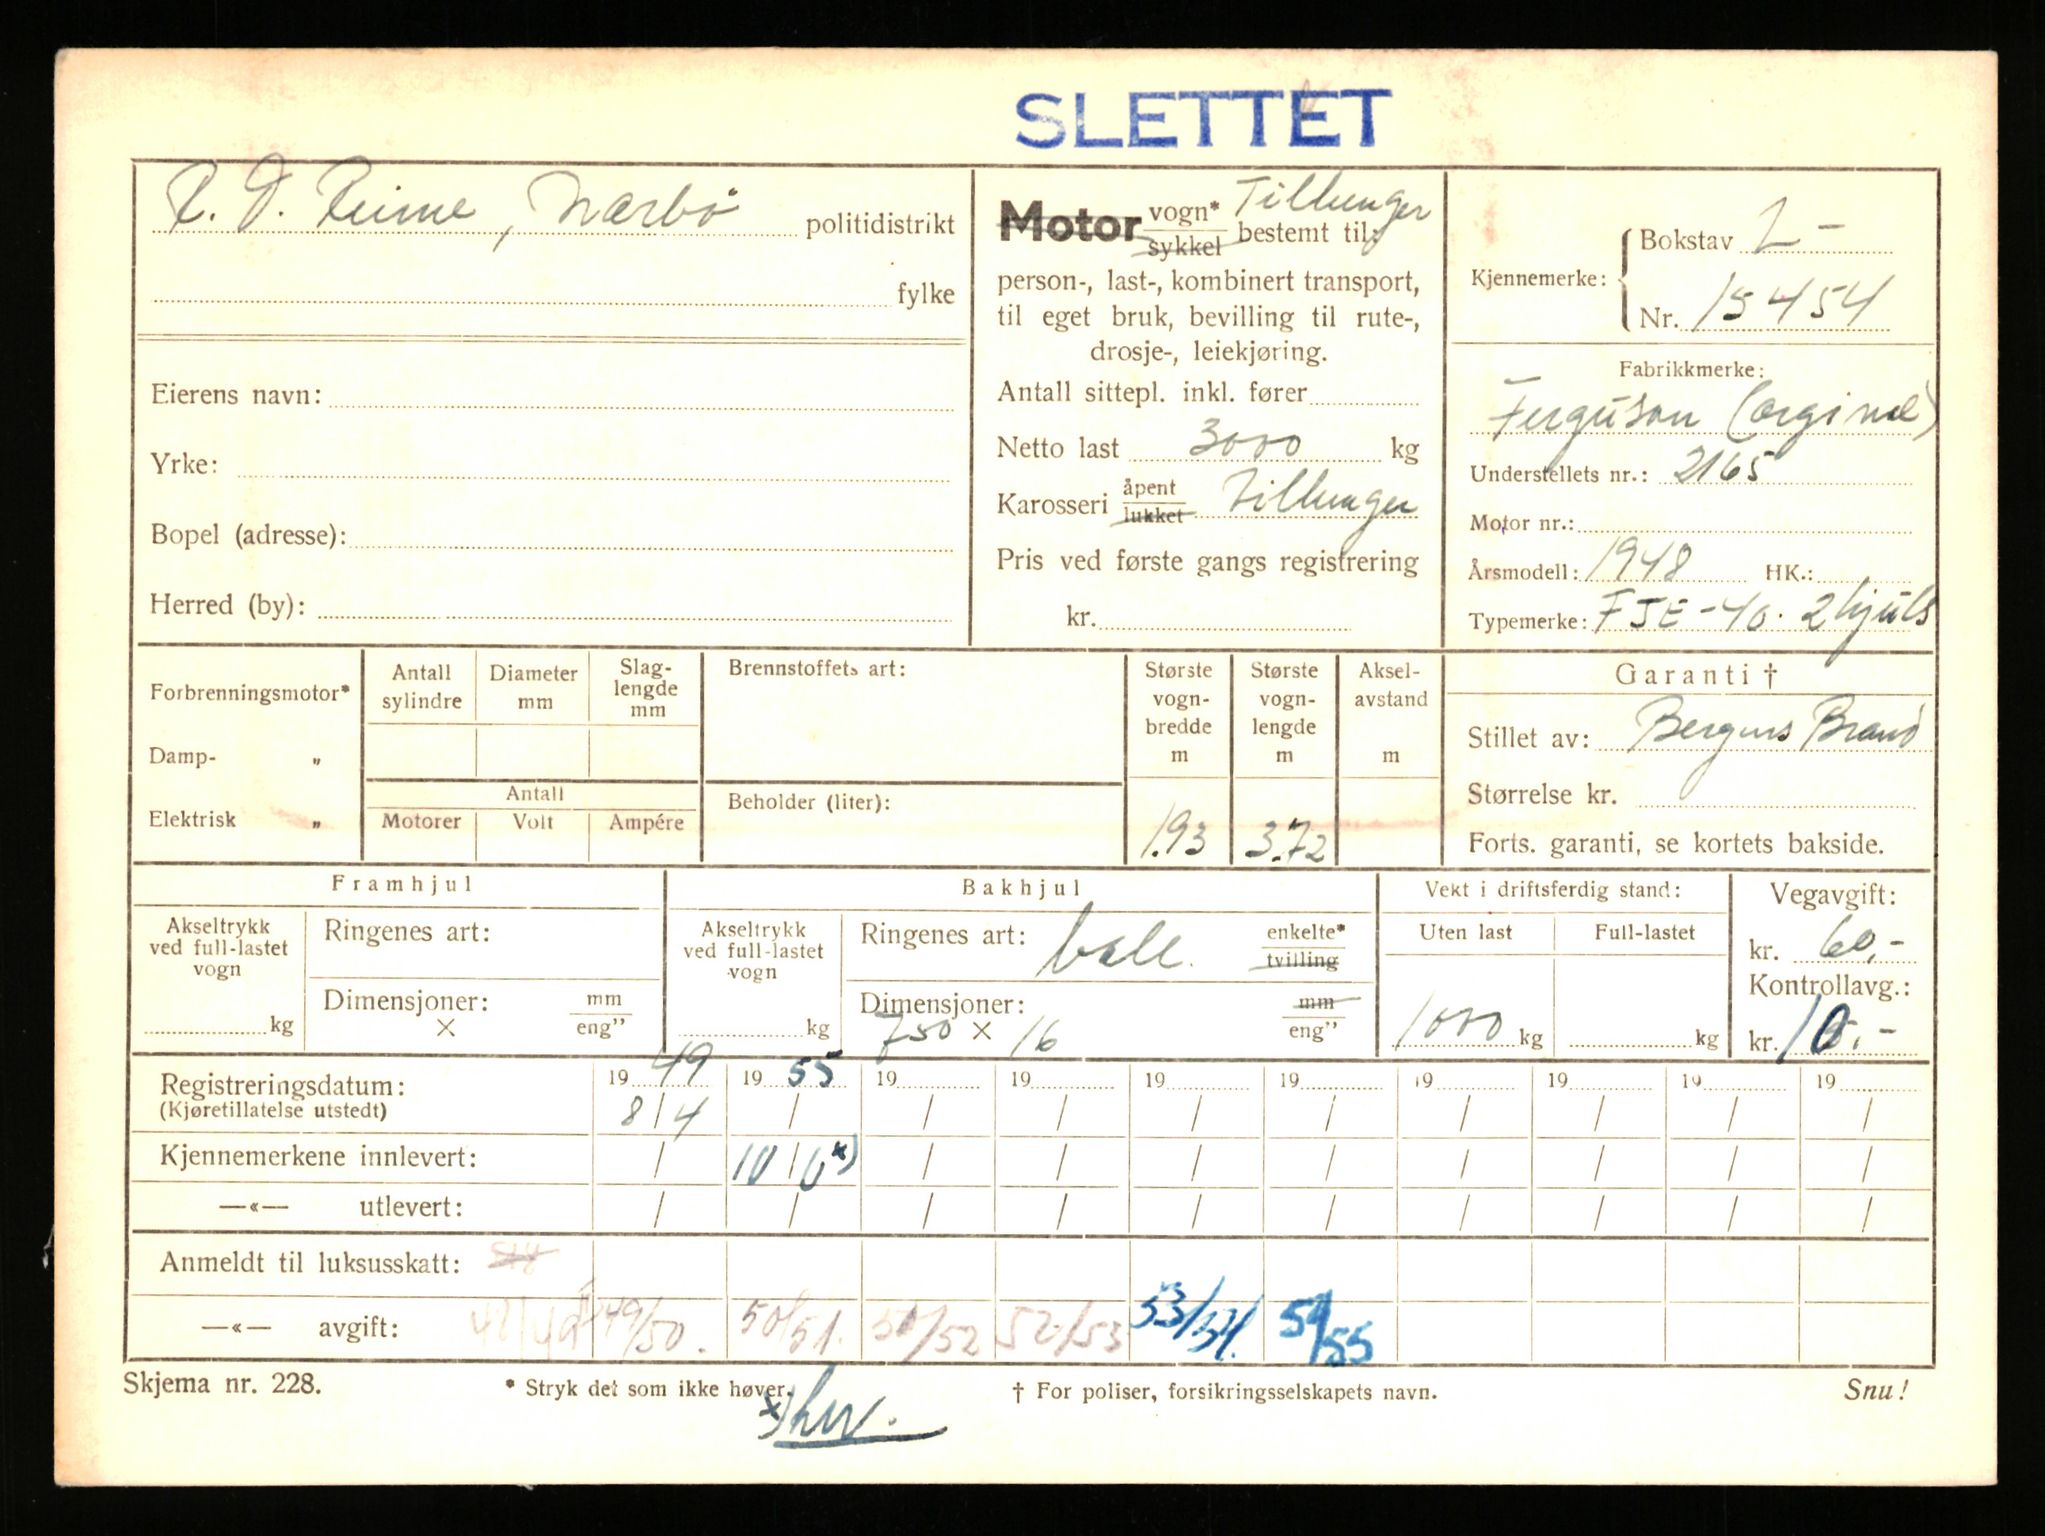 SLETTET
R. O. Reime, Nærbö politidistrikt
fylke
Eierens navn:
Yrke:
Bopel (adresse):
Herred (by):
Motor vogn* sykkel bestemt til: Tilhenger
person-, last-, kombinert transport,
til eget bruk, bevilling til rute-,
drosje-, leiekjøring.
Antall sittepl. inkl. fører
Netto last 3000 kg
Karosseri åpent lukket Tilhenger
Pris ved første gangs registrering
kr.
Kjennemerke: Bokstav L -
Nr. 15454
Fabrikkmerke:
Ferguson (orginal)
Understellets nr.: 2165
Motor nr.:
Årsmodell: 1948 HK.:
Typemerke: FJE-40. 2 hjuls
Forbrenningsmotor*
Damp- „
Elektrisk „
Antall sylindre
Diameter mm
Slag-lengde mm
Antall
Motorer Volt Ampére
Brennstoffets art:
Beholder (liter):
Største vogn-bredde m
1.93
Største vogn-lengde m
3.72
Aksel-avstand m
Garanti †
Stillet av: Bergens Brand
Størrelse kr.
Forts. garanti, se kortets bakside.
Framhjul
Akseltrykk ved full-lastet vogn
kg
Ringenes art:
Dimensjoner: mm
× eng”
Bakhjul
Akseltrykk ved full-lastet vogn
kg
Ringenes art: enkelte* tvilling
Dimensjoner: mm
750 × 16 eng”
Vekt i driftsferdig stand:
Uten last Full-lastet
1000 kg kg
Vegavgift:
kr. 60,-
Kontrollavg.:
kr. 10.-
Registreringsdatum: 19 49 19 55 19 19 19 19 19 19 19 19
(Kjøretillatelse utstedt) 8/4 / / / / / / / / /
Kjennemerkene innlevert: / 10/6 x) / / / / / / / /
—«— utlevert: / / / / / / / / / /
Anmeldt til luksusskatt:
—«— avgift: 48/49 49/50. 50/51. 51/52 52/53 53/54. 54/55
Skjema nr. 228. * Stryk det som ikke høver. † For poliser, forsikringsselskapets navn. Snu!
x)